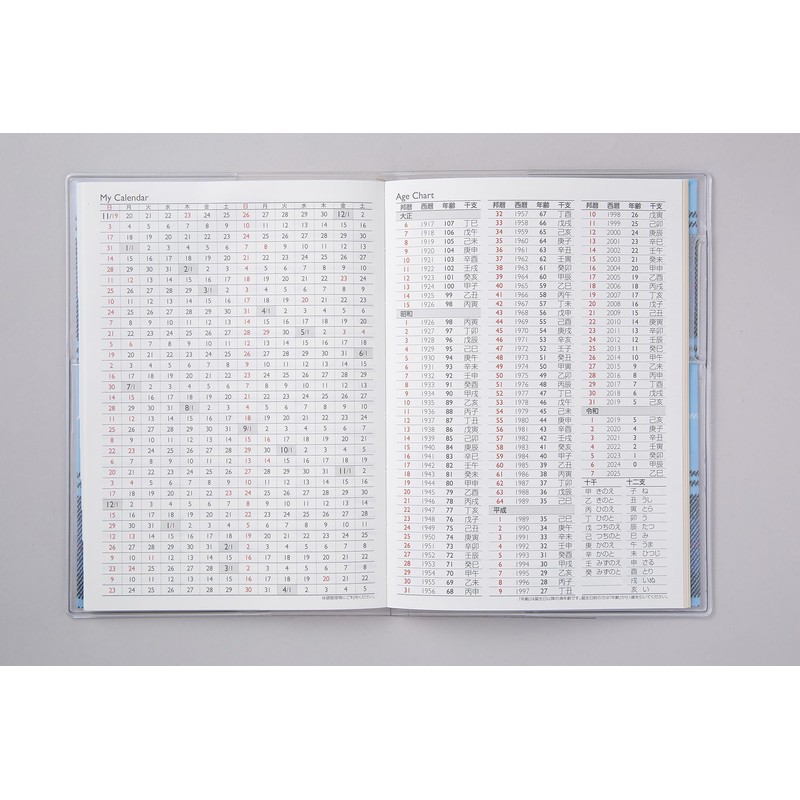 My Calendar
日 月 火 水 木 金 土 日 月 火 水 木 金 土
11/19 20 21 22 23 24 25 26 27 28 29 30 12/1 2
3 4 5 6 7 8 9 10 11 12 13 14 15 16
17 18 19 20 21 22 23 24 25 26 27 28 29 30
31 1/1 2 3 4 5 6 7 8 9 10 11 12 13
14 15 16 17 18 19 20 21 22 23 24 25 26 27
28 29 30 31 2/1 2 3 4 5 6 7 8 9 10
11 12 13 14 15 16 17 18 19 20 21 22 23 24
25 26 27 28 29 3/1 2 3 4 5 6 7 8 9
10 11 12 13 14 15 16 17 18 19 20 21 22 23
24 25 26 27 28 29 30 31 4/1 2 3 4 5 6
7 8 9 10 11 12 13 14 15 16 17 18 19 20
21 22 23 24 25 26 27 28 29 30 5/1 2 3 4
5 6 7 8 9 10 11 12 13 14 15 16 17 18
19 20 21 22 23 24 25 26 27 28 29 30 31 6/1
2 3 4 5 6 7 8 9 10 11 12 13 14 15
16 17 18 19 20 21 22 23 24 25 26 27 28 29
30 7/1 2 3 4 5 6 7 8 9 10 11 12 13
14 15 16 17 18 19 20 21 22 23 24 25 26 27
28 29 30 31 8/1 2 3 4 5 6 7 8 9 10
11 12 13 14 15 16 17 18 19 20 21 22 23 24
25 26 27 28 29 30 31 9/1 2 3 4 5 6 7
8 9 10 11 12 13 14 15 16 17 18 19 20 21
22 23 24 25 26 27 28 29 30 10/1 2 3 4 5
6 7 8 9 10 11 12 13 14 15 16 17 18 19
20 21 22 23 24 25 26 27 28 29 30 31 11/1 2
3 4 5 6 7 8 9 10 11 12 13 14 15 16
17 18 19 20 21 22 23 24 25 26 27 28 29 30
12/1 2 3 4 5 6 7 8 9 10 11 12 13 14
15 16 17 18 19 20 21 22 23 24 25 26 27 28
29 30 31 1/1 2 3 4 5 6 7 8 9 10 11
12 13 14 15 16 17 18 19 20 21 22 23 24 25
26 27 28 29 30 31 2/1 2 3 4 5 6 7 8
9 10 11 12 13 14 15 16 17 18 19 20 21 22
23 24 25 26 27 28 3/1 2 3 4 5 6 7 8
9 10 11 12 13 14 15 16 17 18 19 20 21 22
23 24 25 26 27 28 29 30 31 4/1 2 3 4 5
体調管理等にご利用ください。
Age Chart
邦暦 西暦 年齢 干支
大正
6 1917 107 丁巳
7 1918 106 戊午
8 1919 105 己未
9 1920 104 庚申
10 1921 103 辛酉
11 1922 102 壬戌
12 1923 101 癸亥
13 1924 100 甲子
14 1925 99 乙丑
15 1926 98 丙寅
昭和
1 1926 98 丙寅
2 1927 97 丁卯
3 1928 96 戊辰
4 1929 95 己巳
5 1930 94 庚午
6 1931 93 辛未
7 1932 92 壬申
8 1933 91 癸酉
9 1934 90 甲戌
10 1935 89 乙亥
11 1936 88 丙子
12 1937 87 丁丑
13 1938 86 戊寅
14 1939 85 己卯
15 1940 84 庚辰
16 1941 83 辛巳
17 1942 82 壬午
18 1943 81 癸未
19 1944 80 甲申
20 1945 79 乙酉
21 1946 78 丙戌
22 1947 77 丁亥
23 1948 76 戊子
24 1949 75 己丑
25 1950 74 庚寅
26 1951 73 辛卯
27 1952 72 壬辰
28 1953 71 癸巳
29 1954 70 甲午
30 1955 69 乙未
31 1956 68 丙申
邦暦 西暦 年齢 干支
32 1957 67 丁酉
33 1958 66 戊戌
34 1959 65 己亥
35 1960 64 庚子
36 1961 63 辛丑
37 1962 62 壬寅
38 1963 61 癸卯
39 1964 60 甲辰
40 1965 59 乙巳
41 1966 58 丙午
42 1967 57 丁未
43 1968 56 戊申
44 1969 55 己酉
45 1970 54 庚戌
46 1971 53 辛亥
47 1972 52 壬子
48 1973 51 癸丑
49 1974 50 甲寅
50 1975 49 乙卯
51 1976 48 丙辰
52 1977 47 丁巳
53 1978 46 戊午
54 1979 45 己未
55 1980 44 庚申
56 1981 43 辛酉
57 1982 42 壬戌
58 1983 41 癸亥
59 1984 40 甲子
60 1985 39 乙丑
61 1986 38 丙寅
62 1987 37 丁卯
63 1988 36 戊辰
64 1989 35 己巳
平成
1 1989 35 己巳
2 1990 34 庚午
3 1991 33 辛未
4 1992 32 壬申
5 1993 31 癸酉
6 1994 30 甲戌
7 1995 29 乙亥
8 1996 28 丙子
9 1997 27 丁丑
邦暦 西暦 年齢 干支
10 1998 26 戊寅
11 1999 25 己卯
12 2000 24 庚辰
13 2001 23 辛巳
14 2002 22 壬午
15 2003 21 癸未
16 2004 20 甲申
17 2005 19 乙酉
18 2006 18 丙戌
19 2007 17 丁亥
20 2008 16 戊子
21 2009 15 己丑
22 2010 14 庚寅
23 2011 13 辛卯
24 2012 12 壬辰
25 2013 11 癸巳
26 2014 10 甲午
27 2015 9 乙未
28 2016 8 丙申
29 2017 7 丁酉
30 2018 6 戊戌
31 2019 5 己亥
令和
1 2019 5 己亥
2 2020 4 庚子
3 2021 3 辛丑
4 2022 2 壬寅
5 2023 1 癸卯
6 2024 0 甲辰
7 2025 乙巳
十干 十二支
甲 きのえ 子 ね
乙 きのと 丑 うし
丙 ひのえ 寅 とら
丁 ひのと 卯 う
戊 つちのえ 辰 たつ
己 つちのと 巳 み
庚 かのえ 午 うま
辛 かのと 未 ひつじ
壬 みずのえ 申 さる
癸 みずのと 酉 とり
戌 いぬ
亥 い